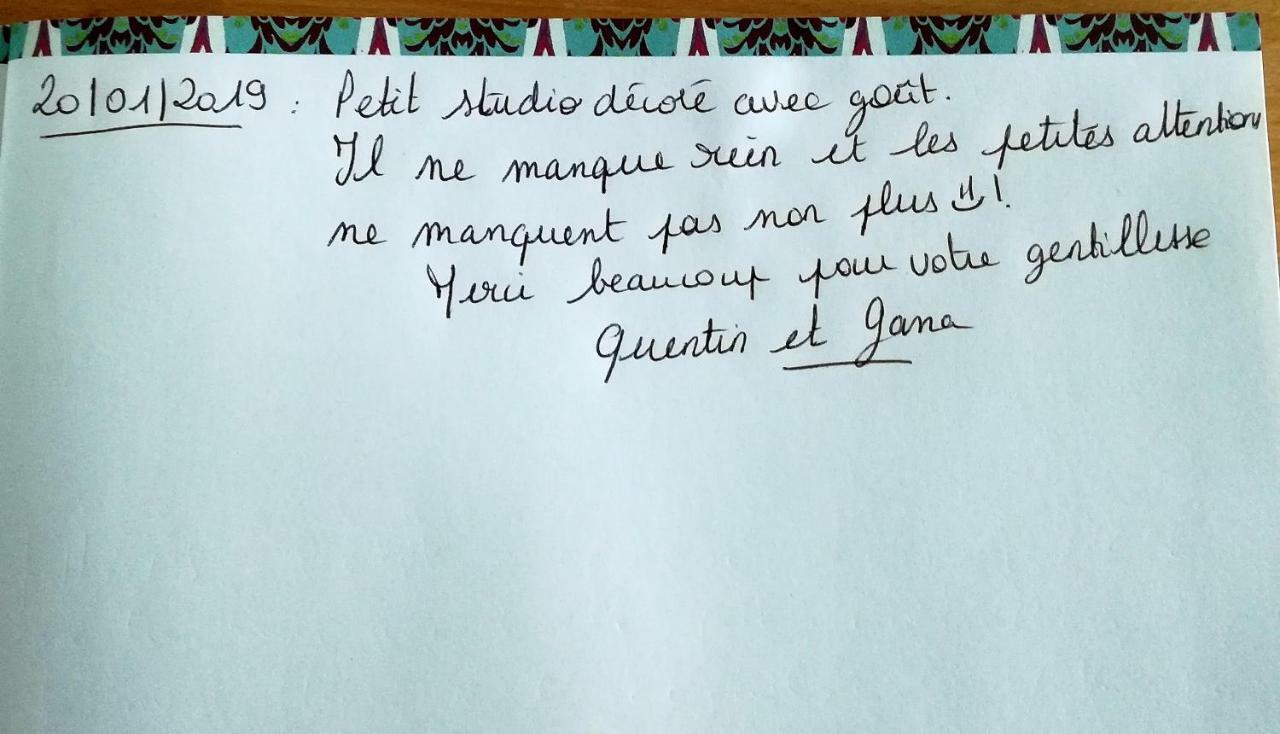 20/01/2019 : Petit studio décoré avec goût.
Il ne manque rien et les petites attentions
ne manquent pas non plus !
Merci beaucoup pour votre gentillesse
Quentin et Jana